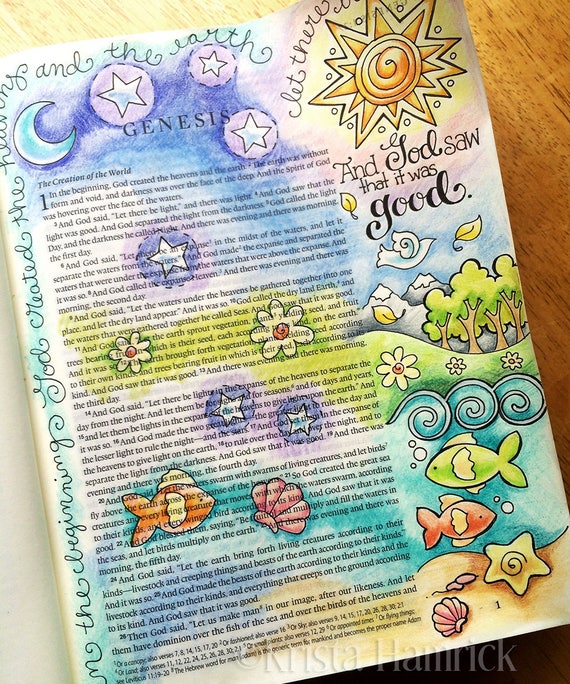 In the beginning, God created the heavens and the earth
let there
GENESIS
And God saw
that it was
good.
The Creation of the World
1 In the beginning, God created the heavens and the earth. 2 The earth was without
form and void, and darkness was over the face of the deep. And the Spirit of God
was hovering over the face of the waters.
3 And God said, "Let there be light," and there was light. 4 And God saw that the
light was good. And God separated the light from the darkness. 5 God called the light
Day, and the darkness he called Night.
the first day.
6 And God said, "Let there be an expanse in the midst of the waters, and let it
separate the waters from the waters." 7 And God made the expanse and separated the
waters that were under the expanse from the waters that were above the expanse. And
it was so. 8 And God called the expanse Heaven. And there was evening and there was
morning, the second day.
9 And God said, "Let the waters under the heavens be gathered together into one
place, and let the dry land appear." And it was so. 10 God called the dry land Earth, and
the waters that were gathered together he called Seas. And God saw that it was good.
11 And God said, "Let the earth sprout vegetation, plants yielding seed, and fruit
trees bearing fruit in which is their seed, each according to its kind, on the earth."
And it was so. 12 The earth brought forth vegetation, plants yielding seed according
to their own kinds, and trees bearing fruit in which is their seed, each according to its kind.
And God saw that it was good. 13 And there was evening and there was morning,
14 And God said, "Let there be lights in the expanse of the heavens to separate the
day from the night. And let them be for signs and for seasons, and for days and years,
15 and let them be lights in the expanse of the heavens to give light upon the earth." And
it was so. 16 And God made the two great lights—the greater light to rule the day and
the lesser light to rule the night—and the stars. 17 And God set them in the expanse of
the heavens to give light on the earth, 18 to rule over the day and over the night, and to
separate the light from the darkness. And God saw that it was good. 19 And there was
evening and there was morning, the fourth day.
20 And God said, "Let the waters swarm with swarms of living creatures, and let birds
fly above the earth across the expanse of the heavens." 21 So God created the great sea
creatures and every living creature that moves, with which the waters swarm, according
to their kinds, and every winged bird according to its kind. And God saw that it was
good. 22 And God blessed them, saying, "Be fruitful and multiply and fill the waters in
the seas, and let birds multiply on the earth." 23 And there was evening and there was
morning, the fifth day.
24 And God said, "Let the earth bring forth living creatures according to their
kinds—livestock and creeping things and beasts of the earth according to their kinds."
And it was so. 25 And God made the beasts of the earth according to their kinds and the
livestock according to their kinds, and everything that creeps on the ground according
to its kind. And God saw that it was good.
26 Then God said, "Let us make man in our image, after our likeness. And let
them have dominion over the fish of the sea and over the birds of the heavens and
1
©Krista Hamrick